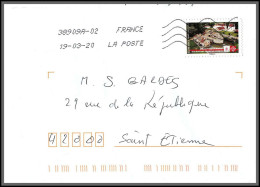 38909A-02 FRANCE
19-03-20 LA POSTE
M. S. BARDES
29 rue de la République
42000 Saint Étienne